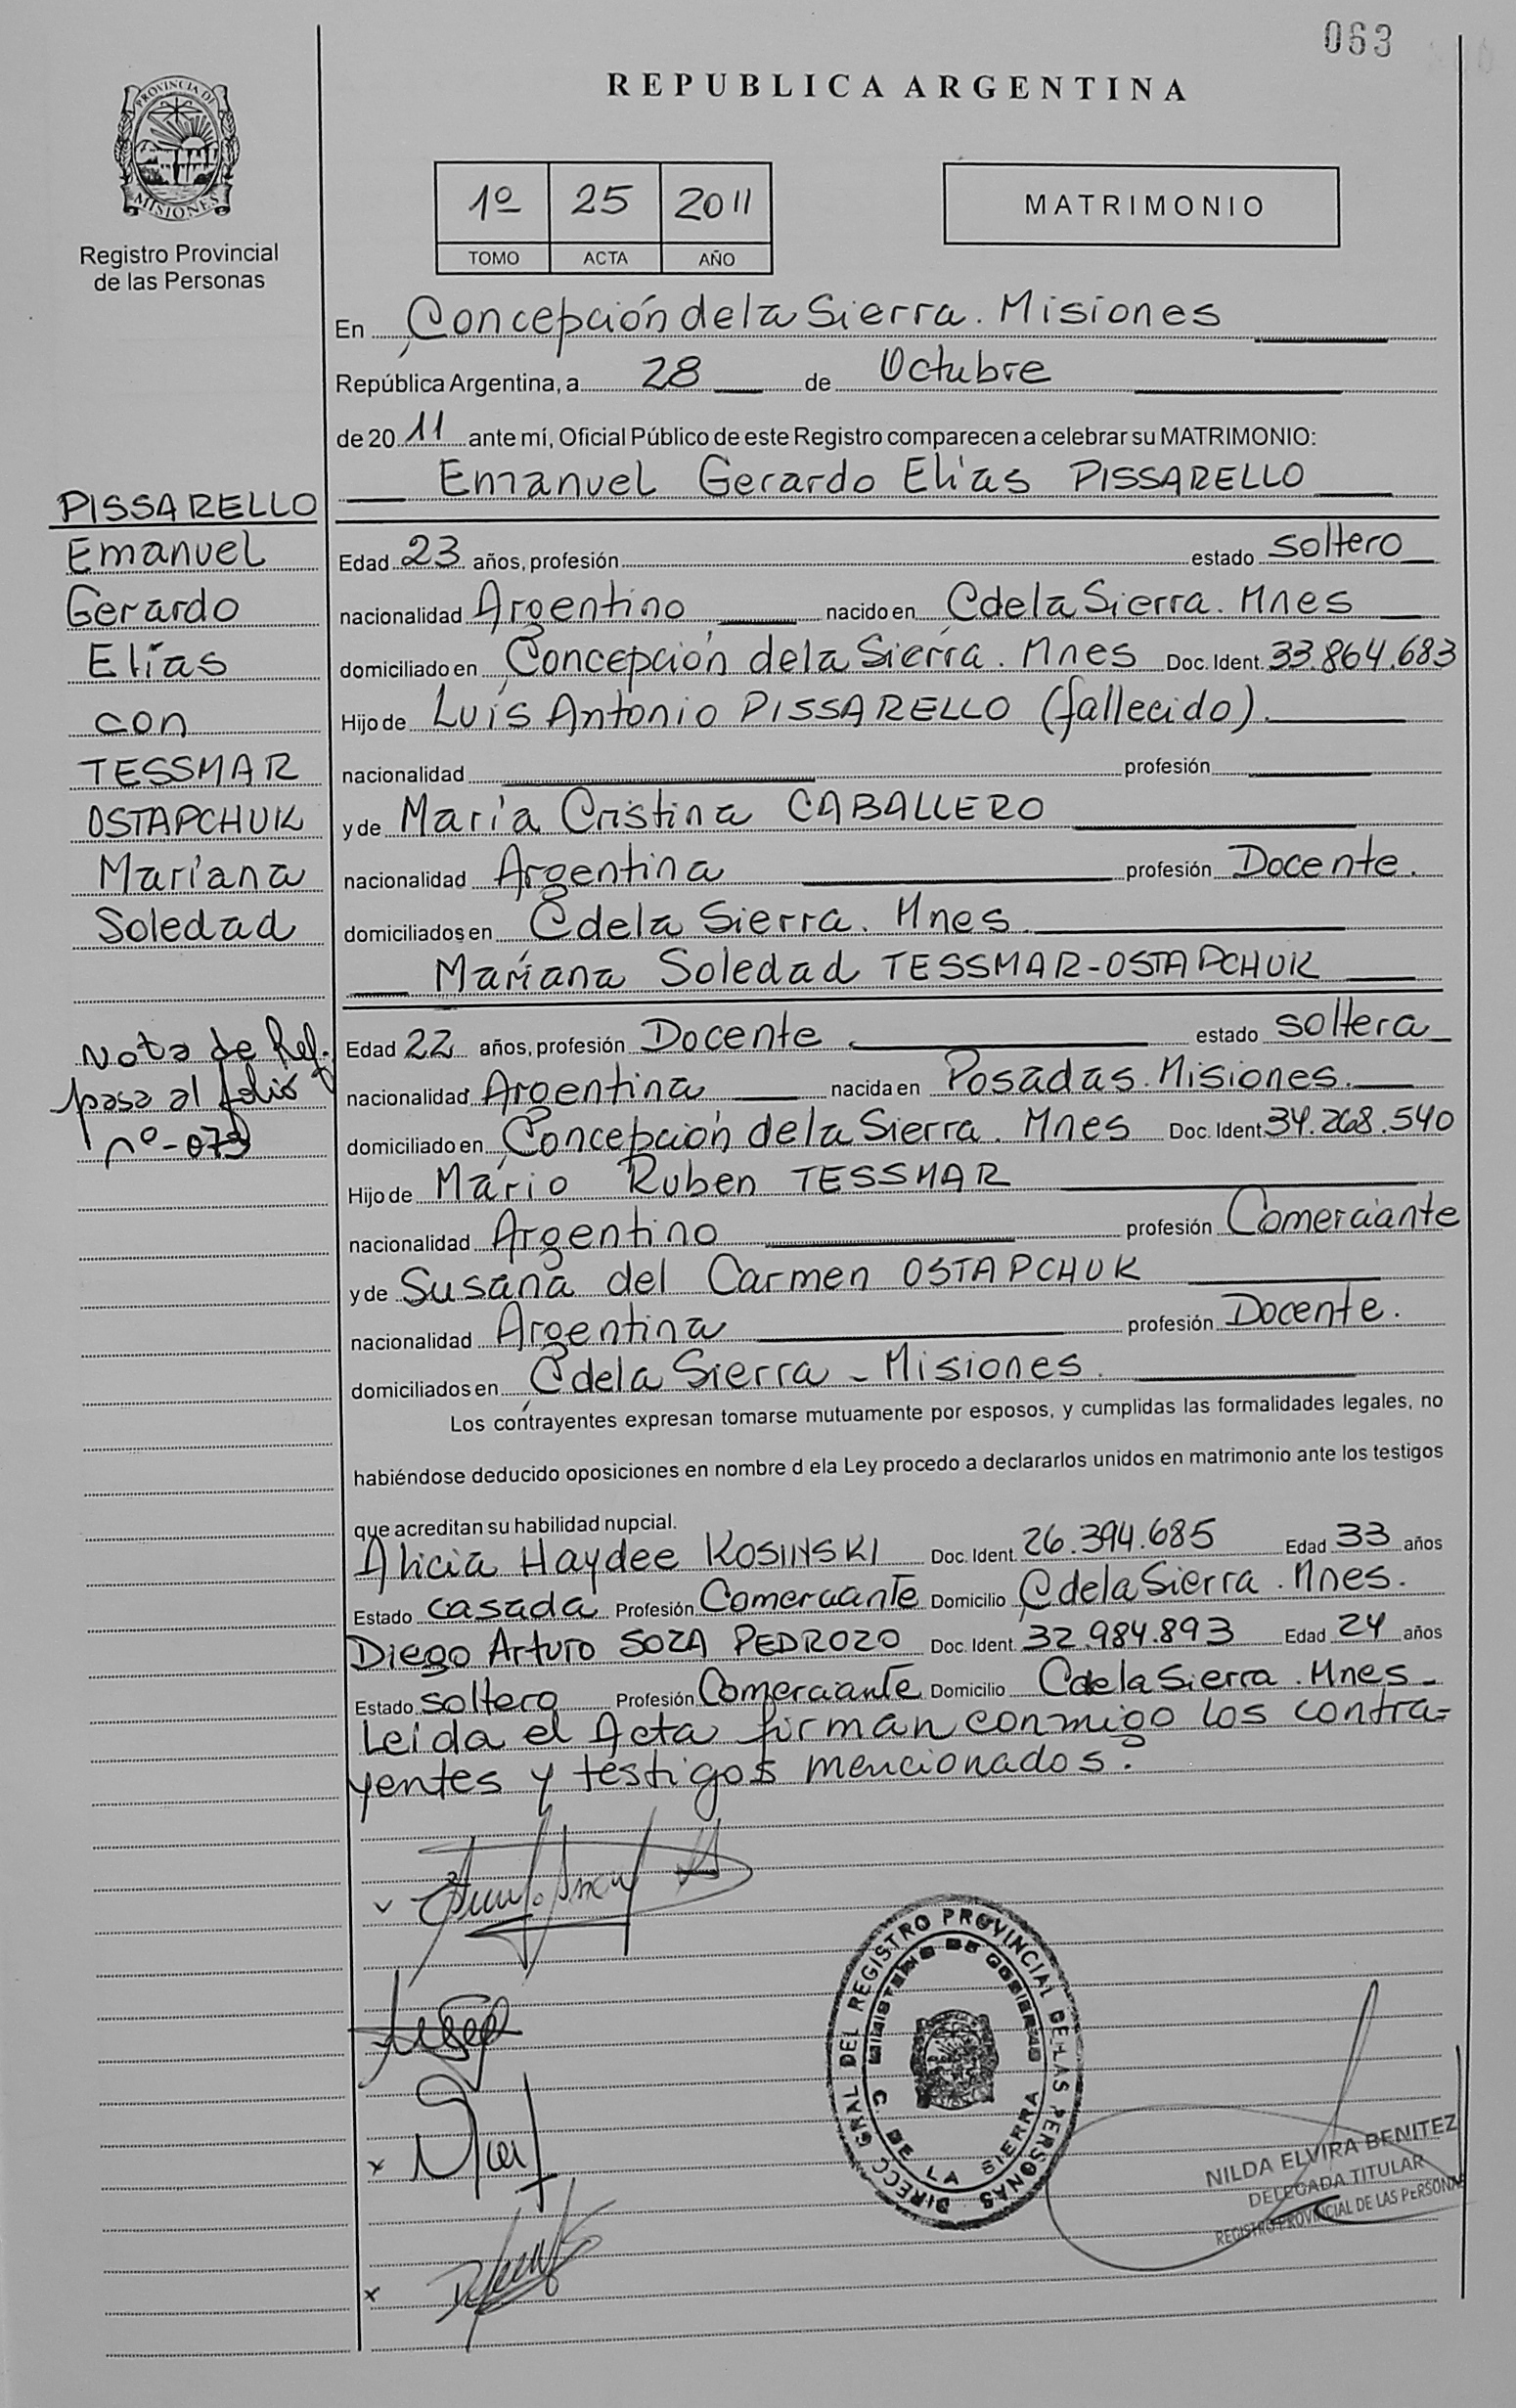 063
REPUBLICA ARGENTINA
PROVINCIA DE
MISIONES
Registro Provincial
de las Personas
1º 25 2011
TOMO ACTA AÑO
MATRIMONIO
En Concepción de la Sierra. Misiones
República Argentina, a 28 de Octubre
de 20 11 ante mí, Oficial Público de este Registro comparecen a celebrar su MATRIMONIO:
Emanuel Gerardo Elías PISSARELLO
PISSARELLO
Emanuel
Gerardo
Elías
con
TESSMAR
OSTAPCHUK
Mariana
Soledad
Nota de Ref.
pasa al folio
nº-073
Edad 23 años, profesión estado soltero
nacionalidad Argentino nacido en C de la Sierra. Mnes
domiciliado en Concepción de la Sierra. Mnes Doc. Ident. 33.864.683
Hijo de Luis Antonio PISSARELLO (fallecido).
nacionalidad profesión
y de María Cristina CABALLERO
nacionalidad Argentina profesión Docente.
domiciliados en C de la Sierra. Mnes.
Mariana Soledad TESSMAR-OSTAPCHUK
Edad 22 años, profesión Docente estado soltera
nacionalidad Argentina nacida en Posadas. Misiones.
domiciliado en Concepción de la Sierra. Mnes Doc. Ident. 34.268.540
Hijo de Mario Ruben TESSMAR
nacionalidad Argentino profesión Comerciante
y de Susana del Carmen OSTAPCHUK
nacionalidad Argentina profesión Docente.
domiciliados en C de la Sierra - Misiones.
Los contrayentes expresan tomarse mutuamente por esposos, y cumplidas las formalidades legales, no
habiéndose deducido oposiciones en nombre d ela Ley procedo a declararlos unidos en matrimonio ante los testigos
que acreditan su habilidad nupcial.
Alicia Haydee KOSINSKI Doc. Ident. 26.394.685 Edad 33 años
Estado casada Profesión Comerciante Domicilio C de la Sierra. Mnes.
Diego Arturo SOZA PEDROZO Doc. Ident. 32.984.893 Edad 24 años
Estado soltero Profesión Comerciante Domicilio C de la Sierra. Mnes-
Leída el Acta firman conmigo los contra=
yentes y testigos mencionados.
DIRECC GRAL DEL REGISTRO PROVINCIAL DE LAS PERSONAS
MINISTERIO DE GOBIERNO
C. DE LA SIERRA
NILDA ELVIRA BENITEZ
DELEGADA TITULAR
REGISTRO PROVINCIAL DE LAS PERSONAS